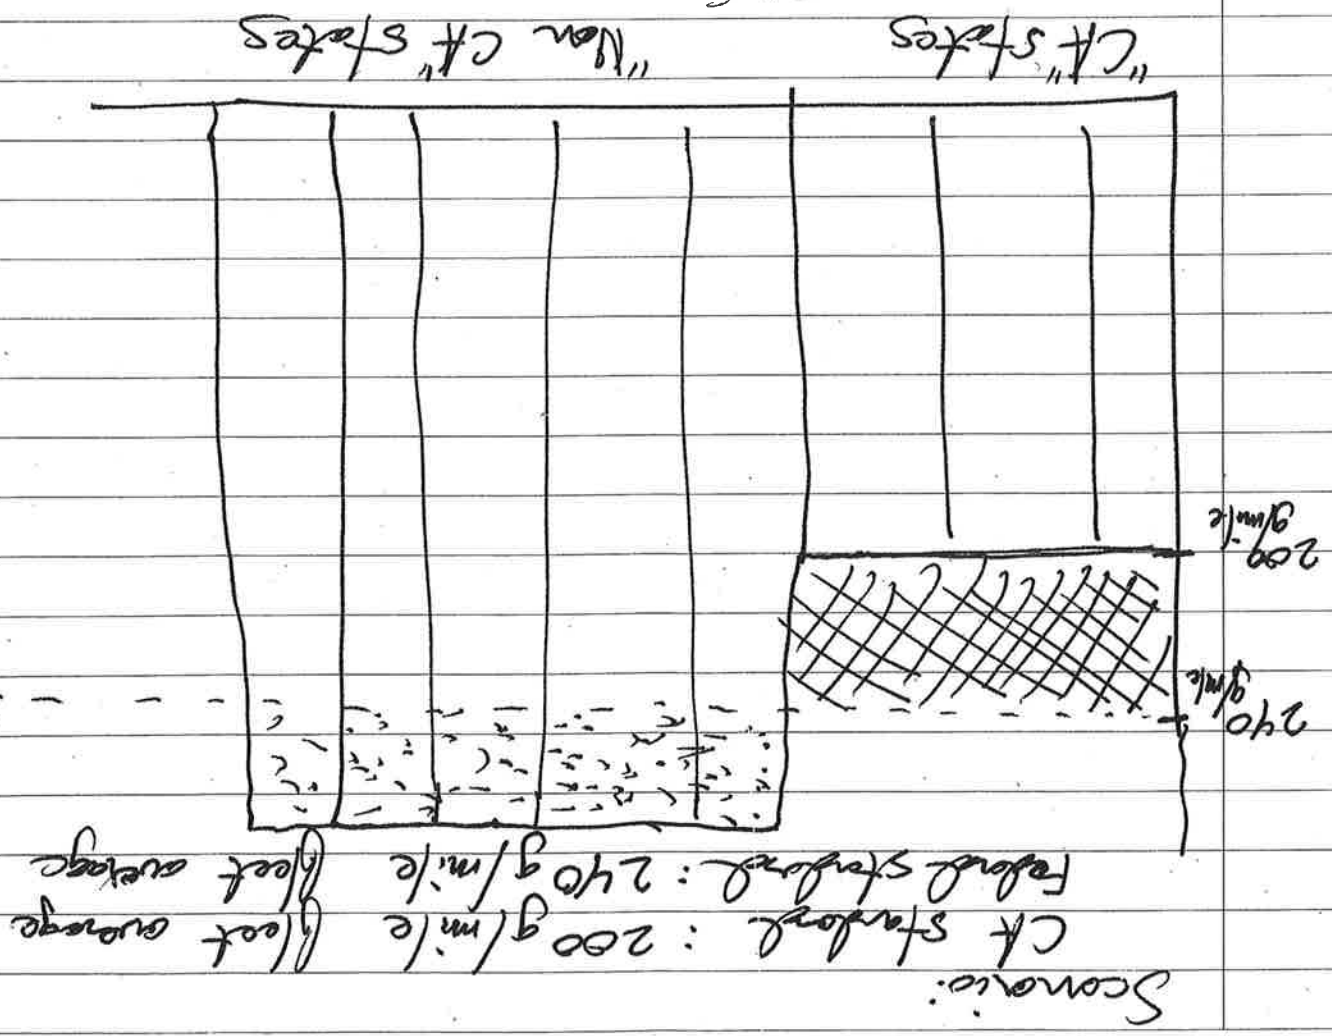 Scenario:
CA standard : 200 g/mile fleet average
Federal standard : 240 g/mile fleet average
240
g/mile
200
g/mile
"CA" states
"Non CA" states